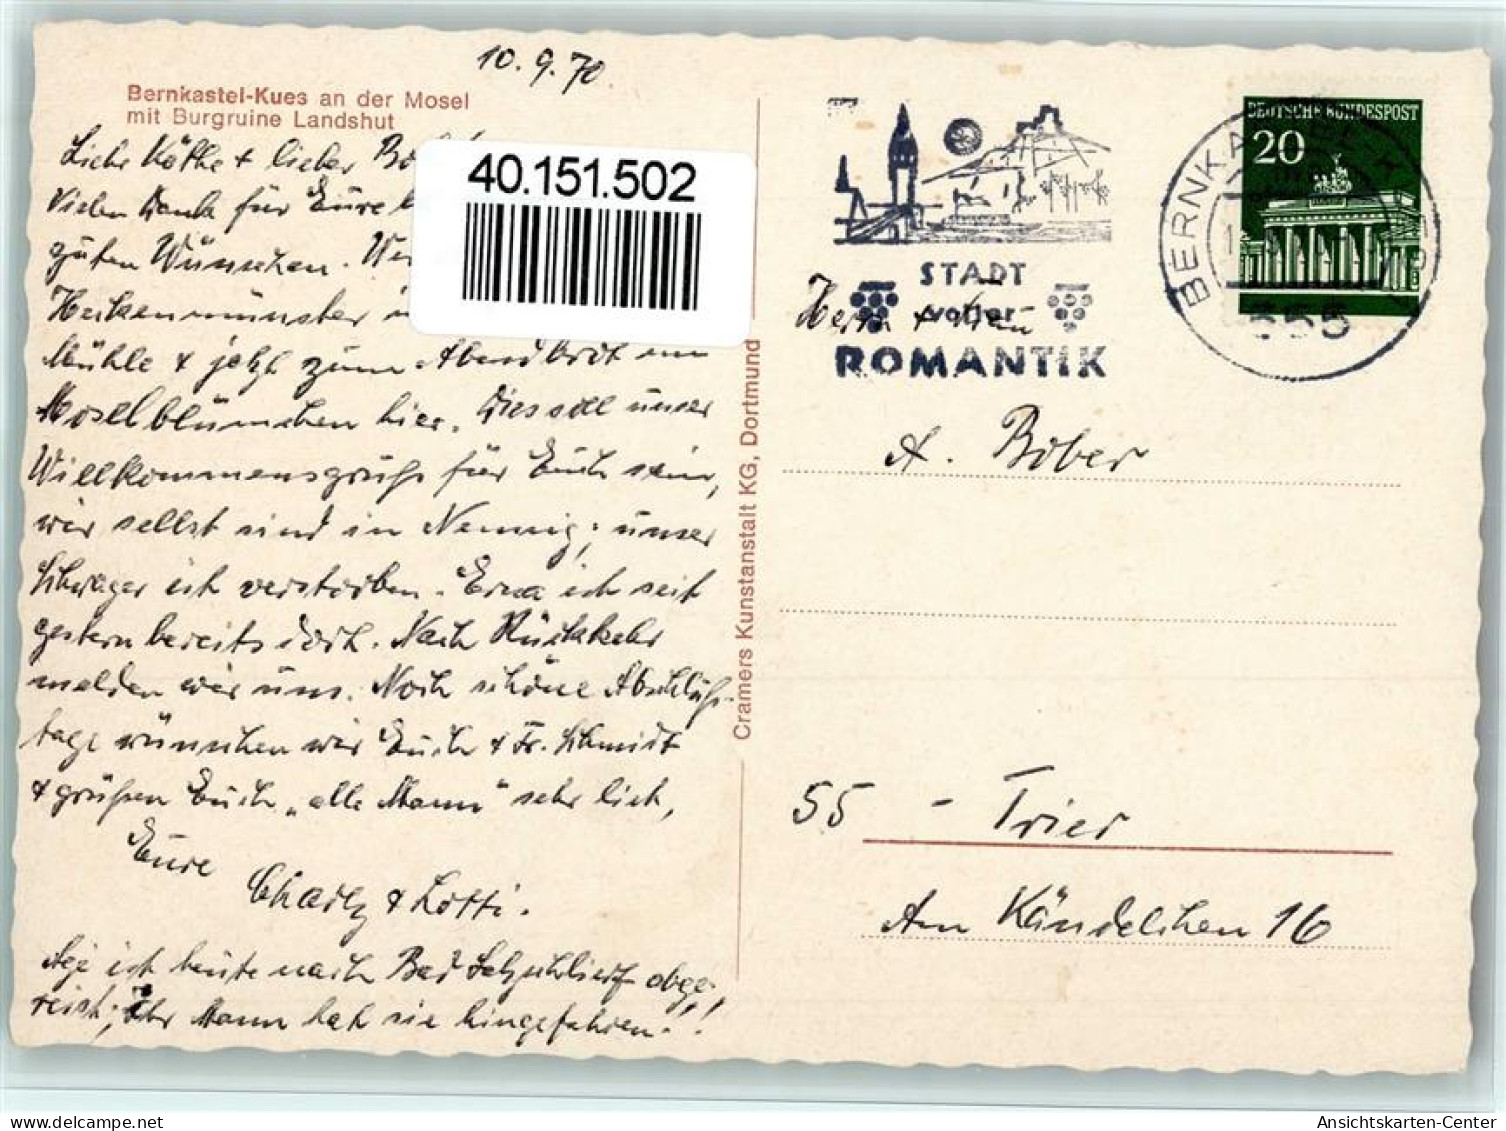 10. 9. 70.
Bernkastel-Kues an der Mosel
mit Burgruine Landshut
Liebe Käthe + lieber
Vielen Dank für Eure
guten Wünschen.
40.151.502
Heckenmünster
Mühle + jetzt zum Abendbrot im
Moselblümchen hier. Dies soll unser
Willkommensgruß für Euch sein,
wir selbst sind in Nennig; unser
Schwager ist verstorben. Erna ist seit
gestern bereits dort. Nach Rückkehr
melden wir uns. Noch schöne Abschluß-
tage wünschen wir Euch + Fr. Schmidt
+ grüßen Euch „alle Mann" sehr lieb,
Eure
Charly + Lotti.
ist heute nach Bad Salzschlirf abge-
reist; Ihr Mann hat sie hingefahren!!
Cramers Kunstanstalt KG, Dortmund
STADT
voller
ROMANTIK
DEUTSCHE BUNDESPOST
20
BERNKASTEL-KUES
555
Herrn + Frau
A. Bober
55 - Trier
Am Kändelchen 16
AnsichtsKarten-Center